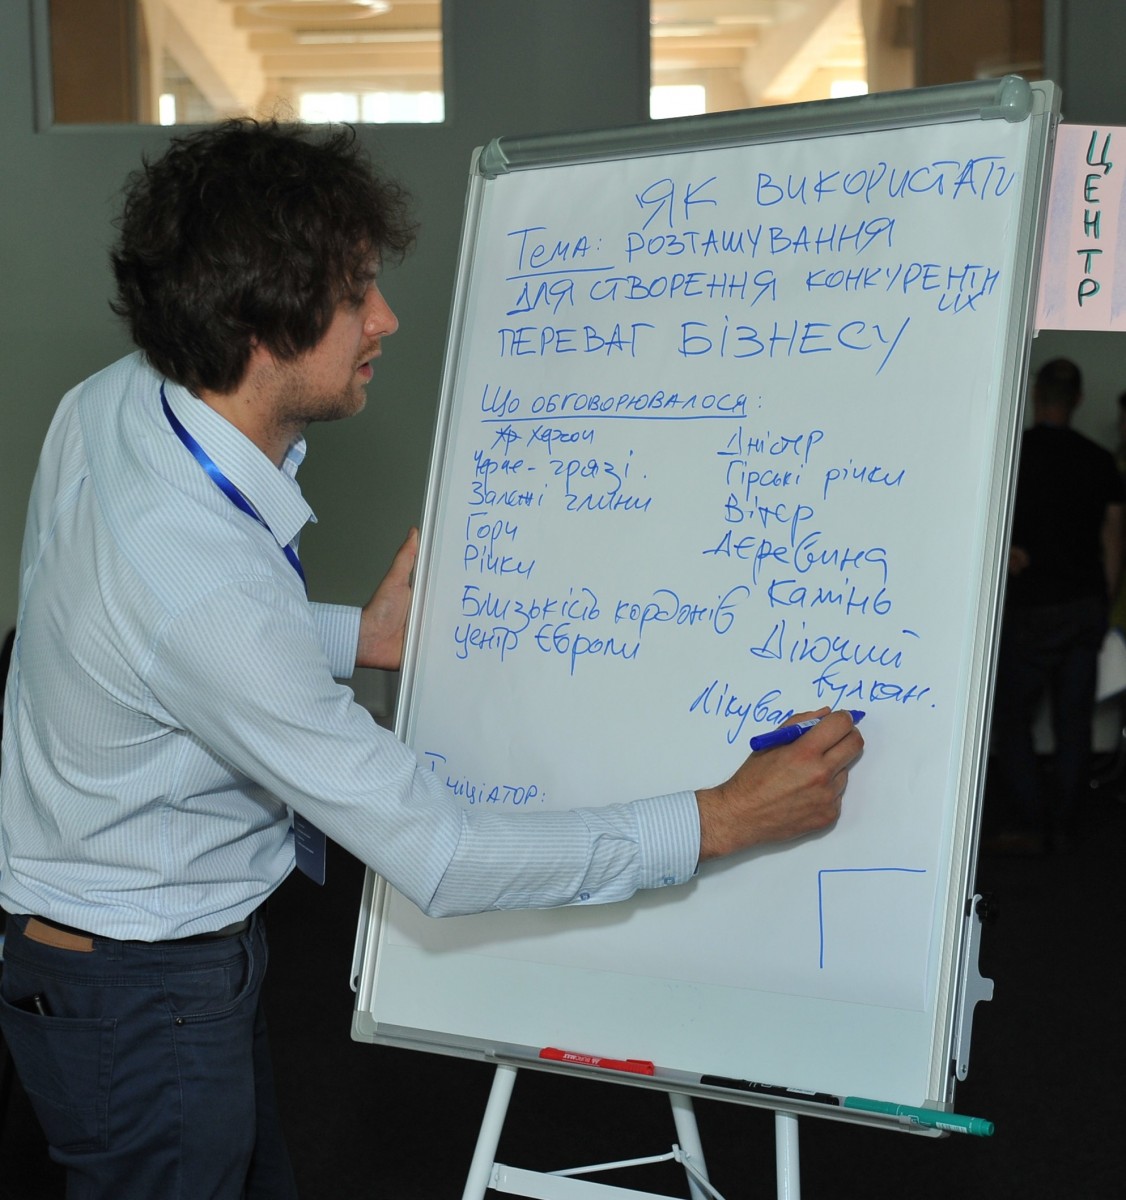 ЯК ВИКОРИСТАТИ
Тема: РОЗТАШУВАННЯ
ДЛЯ СТВОРЕННЯ КОНКУРЕНТН
ИХ
ПЕРЕВАГ БІЗНЕСУ
Що обговорювалося:
Херсон
Чорне - грязі.
Залежі глини
Гори
Річки
Близькість кордонів
Центр Європи
Дністер
Гірські річки
Вітер
Деревина
Камінь
Діючий
вулкан.
Лікувал
Ініціатор:
ЦЕНТР